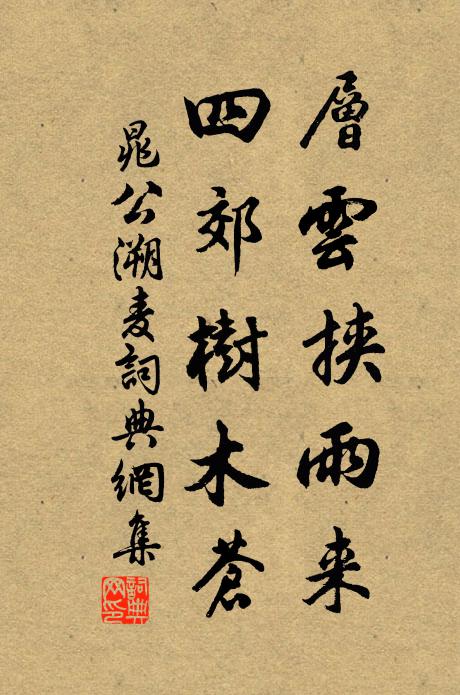 層雲挾雨来
四郊樹木蒼
晁公溯麦詞典網集
詞典网印